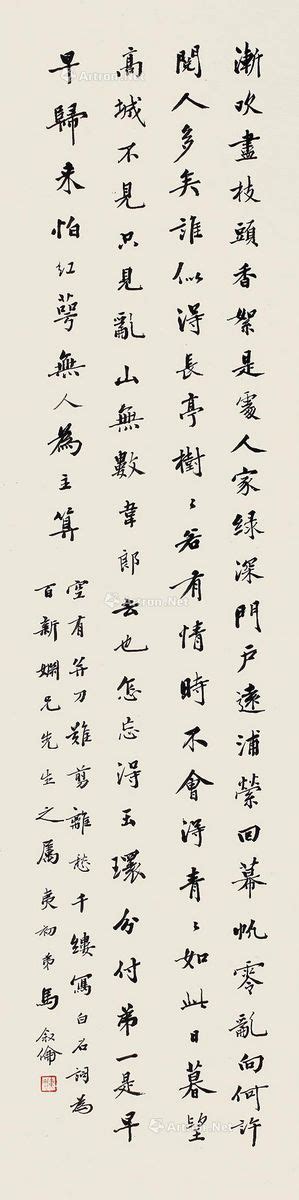 漸吹盡枝頭香絮是處人家綠深門戶遠浦縈回暮帆零亂向何許
閱人多矣誰似得長亭樹〻若有情時不會得青〻如此日暮望
高城不見只見亂山無數韋郎去也怎忘得玉環分付第一是早
早歸來怕紅萼無人為主算
空有并刀難剪離愁千縷寫白石詞為
百新嫻兄先生之屬夷初弟馬叙倫